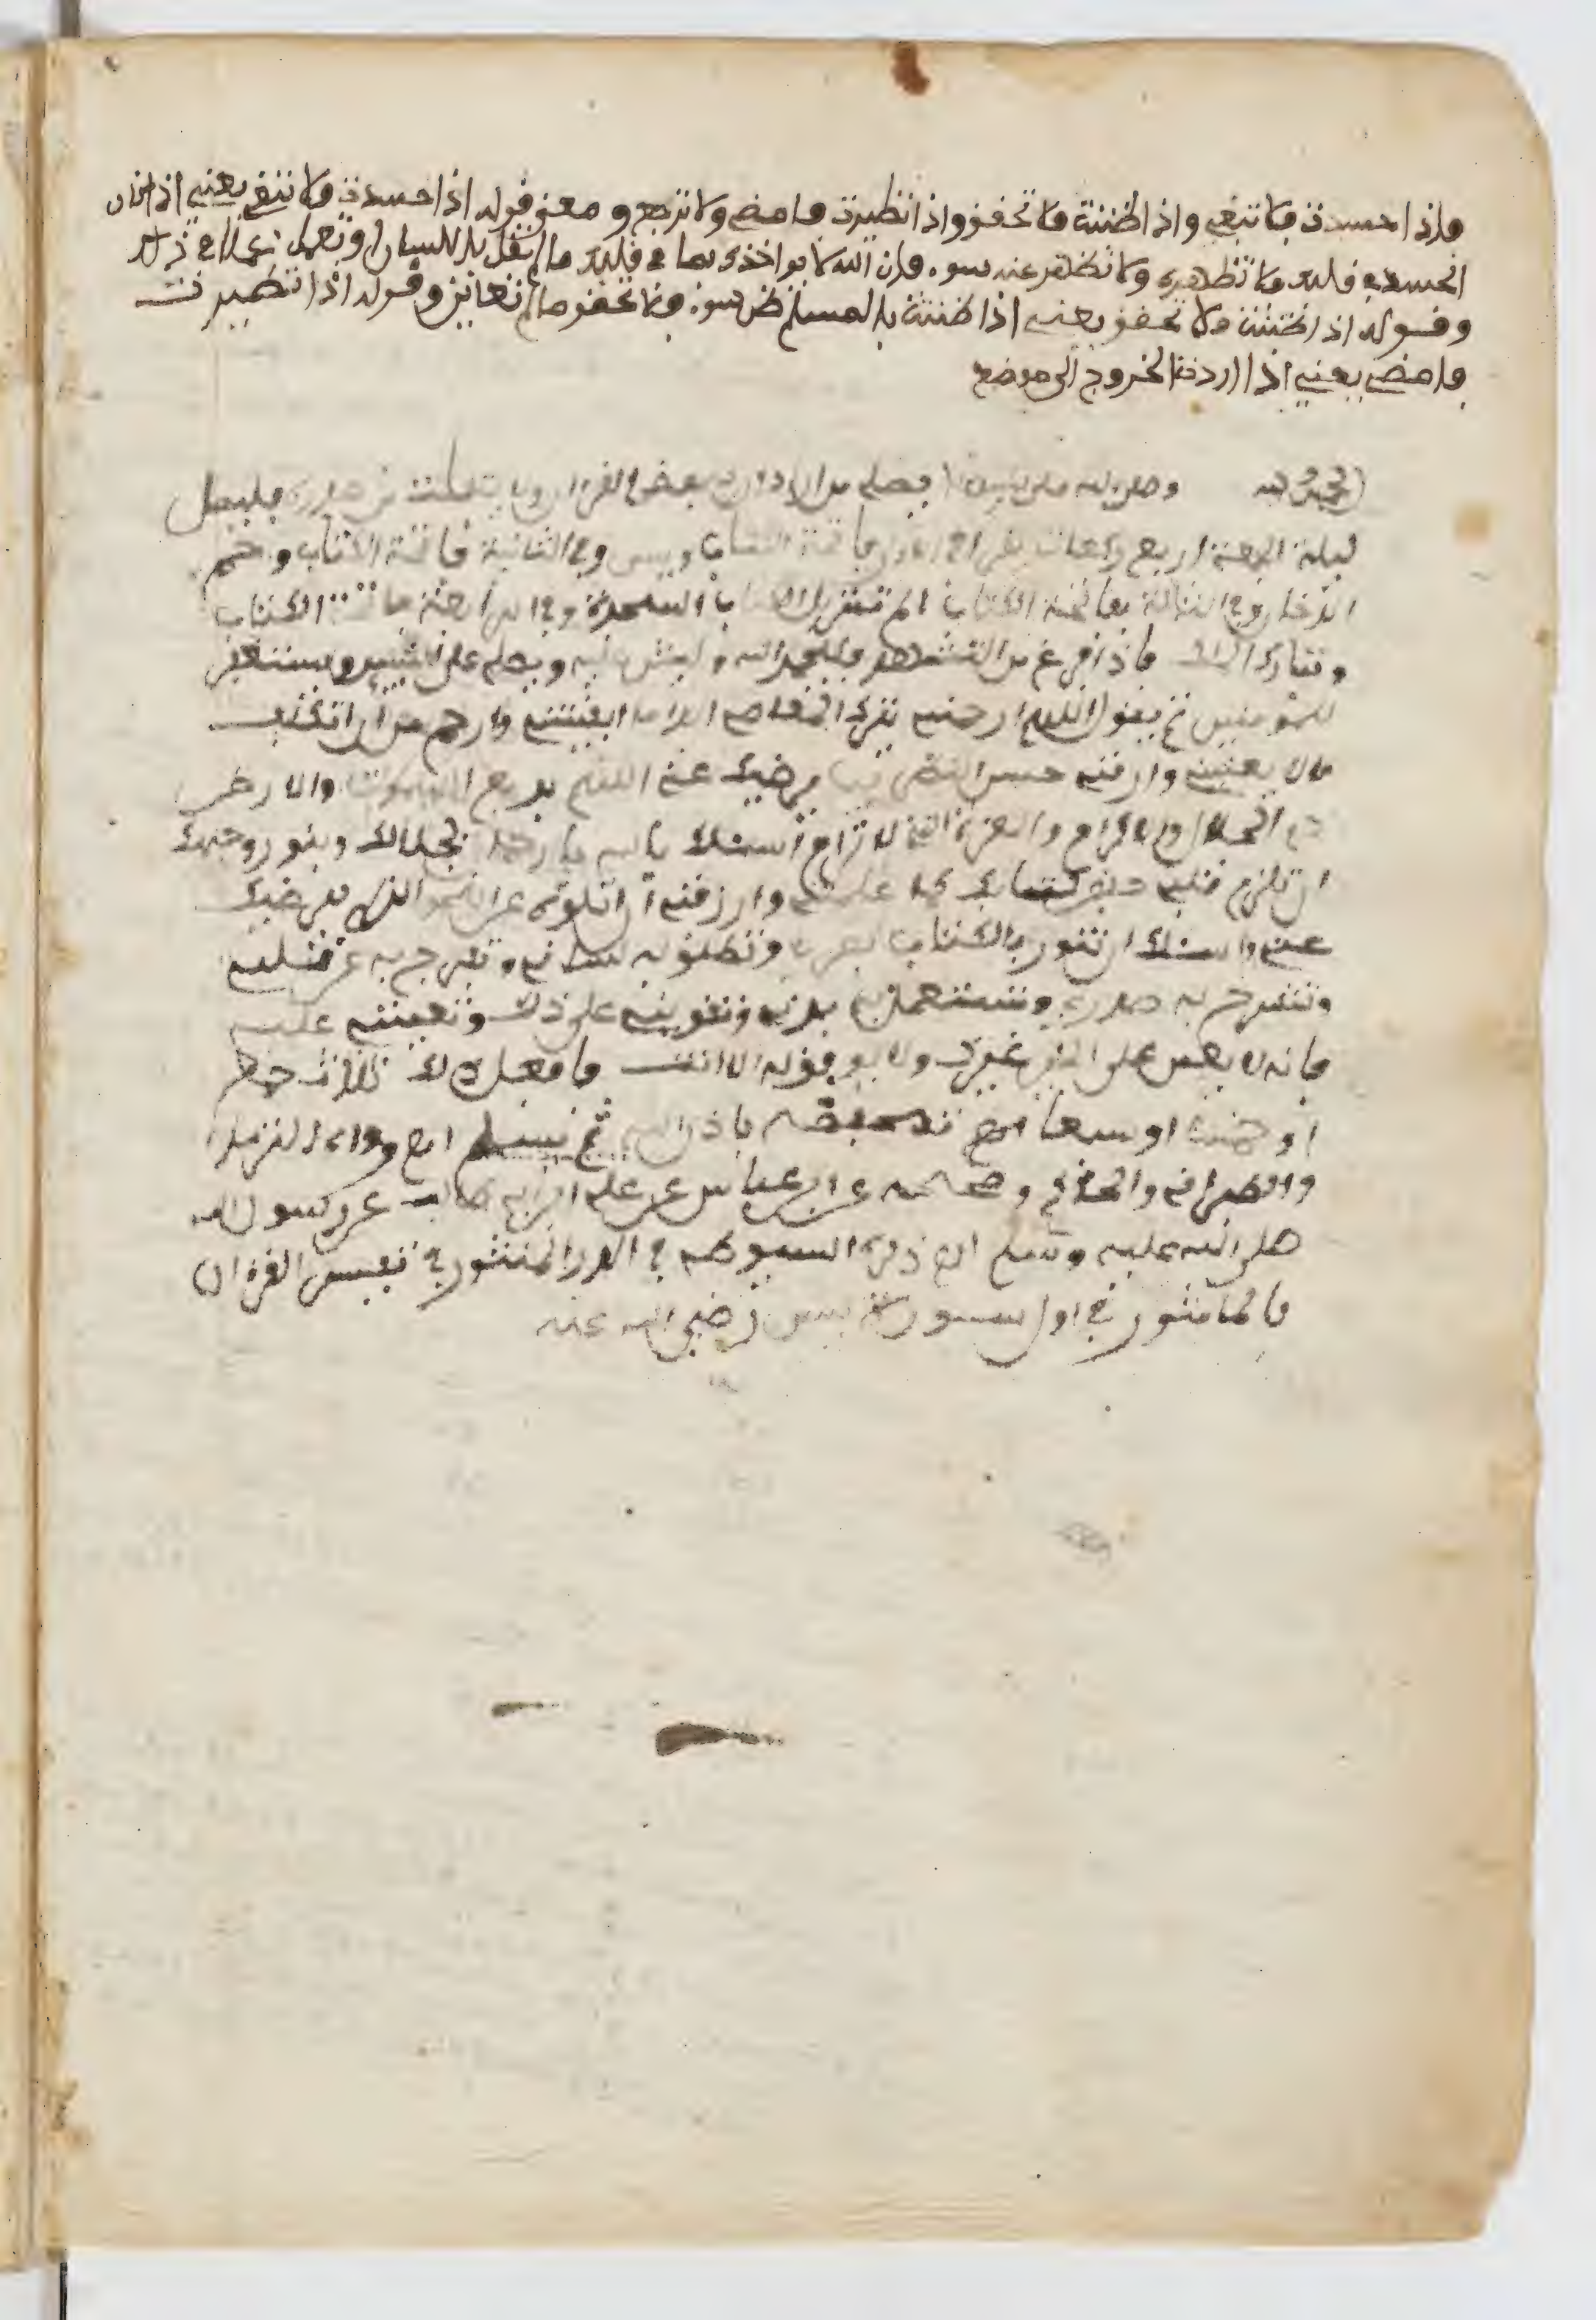 فإذا حسدت فلا تبغي وإذا ظننت فلا تحقق وإذا تطيرت فامض ولا ترجع ومعنى قوله إذا حسدت فلا تبغي يعني إذا كان
الحسد في قلبك فلا تظهره ولا تظهر عنه بسوء فإن الله لا يؤاخذك بما في قلبك ما لم تقل باللسان أو تعمل عملا في ذلك
وقوله إذا ظننت فلا تحقق يعني إذا ظننت بالمسلم ظن سوء فلا تحقق ما لم تعاين وقوله إذا تطيرت
فامض يعني إذا اردت الخروج الى موضع
الحمد لله وصلى الله على نبينا من الاد ان بعض القران وا يتفلت من صدره فليصل
ليلة الجمعة اربع ركعات يقرا في الاولى فاتحة الكتاب ويس وفي الثانية فاتحة الكتاب وحم
الدخان وفي الثالثة بفاتحة الكتاب الم تنزيل الكتاب السجدة وفي الرابعة فاتحة الكتاب
وتبارك الملك فاذا فرغ من التشهد فليحمد الله وليثن عليه ويصل على النبيين ويستغفر
للمومنين ثم يقول اللهم ارحمني بترك المعاصي ابدا ما ابقيتني وارحمني من ان اتكلف
ما لا يعنيني وارزقني حسن النظر فيما يرضيك عني اللهم بديع السموات والارض
ذا الجلال والاكرام والعزة التي لا ترام أسئلك يا الله يا رحمن بجلالك وبنور وجهك
ان تلزم قلبي حفظ كتابك كما علمتني وارزقني أن اتلوه على النحو الذي يرضيك
عني واسئلك ان تنور بالكتاب بصري وتطلق به لساني وتفرج به عن قلبي
وتشرح به صدري وتستعمل به بدني وتقويني على ذلك وتعينني عليه
فانه لا يعين على الخير غيرك ولا يوفق له الا انت فافعل ذلك ثلاث جمع
او خمسا او سبعا تحفظه باذن الله ثم يسلم اه رواه الترمذي
والطبراني والحاكم وصححه عن ابن عباس عن علي ابن ابي طالب عن رسول الله
صلى الله عليه وسلم اه ذكره السيوطي في الدر المنثور في تفسير القران
بالماثور في اول سورة يس رضي الله عنه